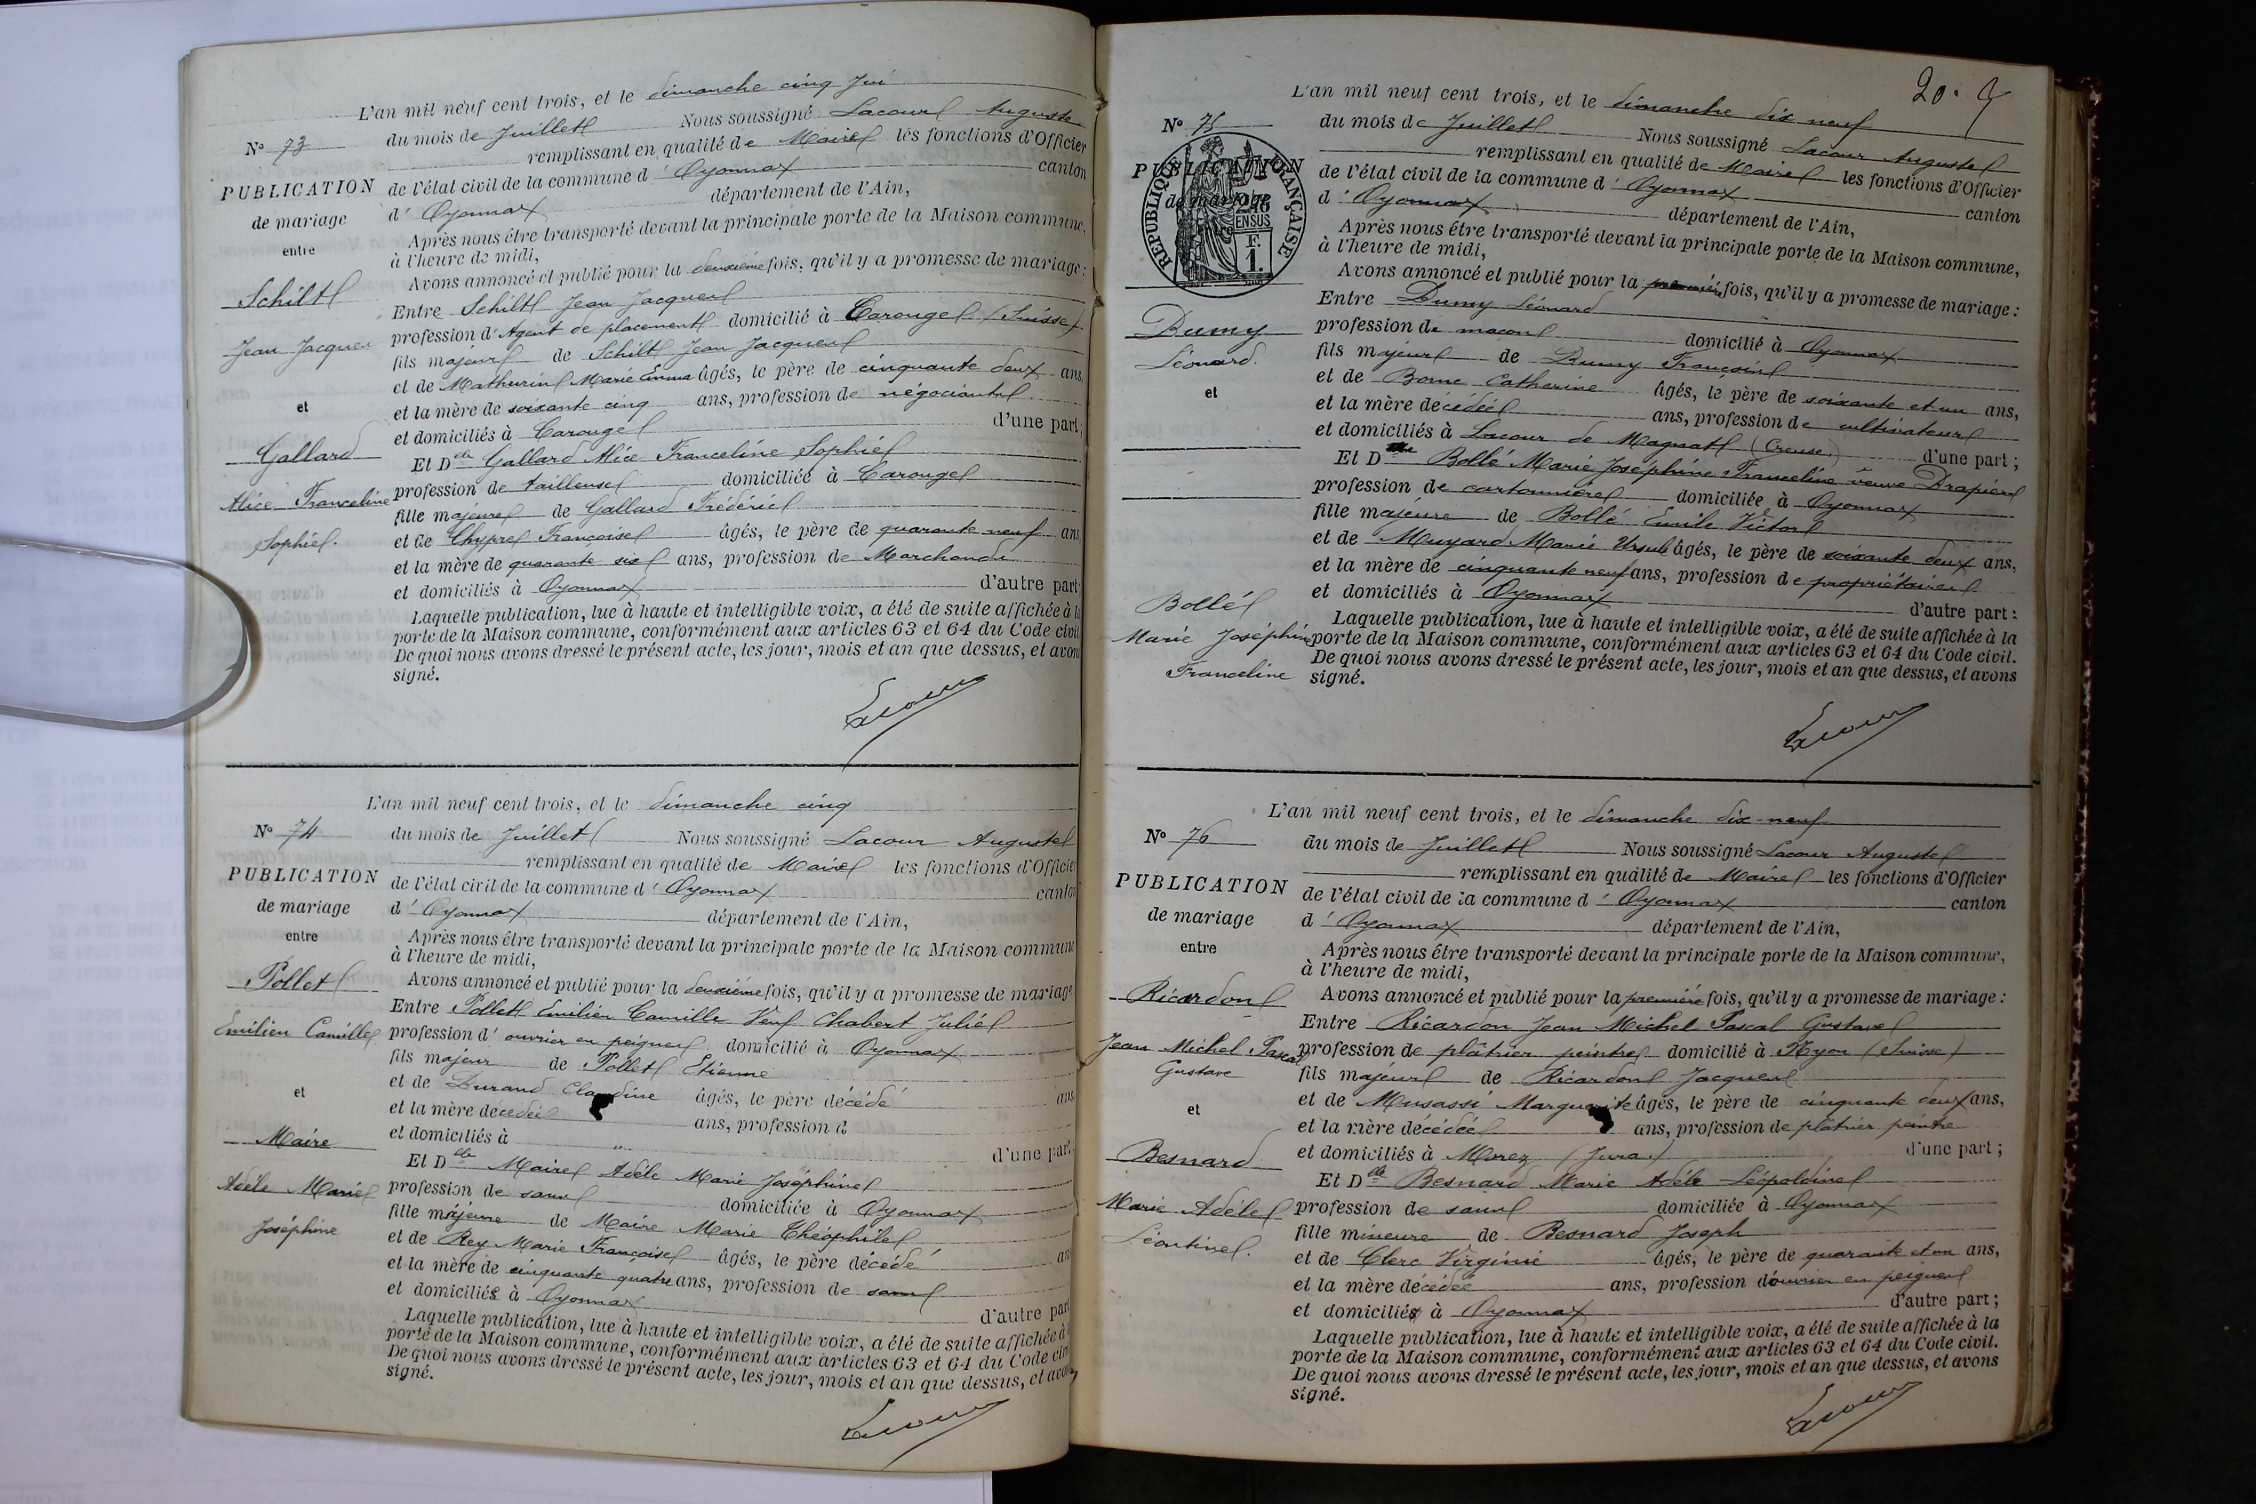 L'an mil neuf cent trois, et le dimanche cinq Jui
N° 73 du mois de Juillet Nous soussigné Lacour Auguste
remplissant en qualité de Maire les fonctions d'Officier
PUBLICATION de l'état civil de la commune d'Oyonnax canton
de mariage d'Oyonnax département de l'Ain,
entre Après nous être transporté devant la principale porte de la Maison commune,
à l'heure de midi,
Avons annoncé et publié pour la deuxième fois, qu'il y a promesse de mariage:
Schilt Entre Schilt Jean Jacques
Jean Jacques profession d'Agent de placement domicilié à Carouge (Suisse)
fils majeur de Schilt Jean Jacques
et de Mathurin Marie Emma âgés, le père de cinquante deux ans,
et et la mère de soixante cinq ans, profession de négociants
et domiciliés à Carouge d'une part;
Gallard Et Dlle Gallard Alice Franceline Sophie
Alice Franceline profession de tailleuse domiciliée à Carouge
fille majeure de Gallard Frédéric
Sophie. et de Chypre Françoise âgés, le père de quarante neuf ans
et la mère de quarante six ans, profession de Marchands
et domiciliés à Oyonnax d'autre part;
Laquelle publication, lue à haute et intelligible voix, a été de suite affichée à la
porte de la Maison commune, conformément aux articles 63 et 64 du Code civil
De quoi nous avons dressé le présent acte, les jour, mois et an que dessus, et avons
signé.
Lacour
L'an mil neuf cent trois, et le dimanche cinq
N° 74 du mois de Juillet Nous soussigné Lacour Auguste
remplissant en qualité de Maire les fonctions d'Officier
PUBLICATION de l'état civil de la commune d'Oyonnax canton
de mariage d'Oyonnax département de l'Ain,
entre Après nous être transporté devant la principale porte de la Maison commune
à l'heure de midi,
Pollet Avons annoncé et publié pour la deuxième fois, qu'il y a promesse de mariage
Entre Pollet Emilien Camille Veuf Chabert Julie
Emilien Camille profession d'ouvrier en peignes domicilié à Oyonnax
fils majeur de Pollet Etienne
et et de Durand Claudine âgés, le père décédé ans
et la mère décédée ans, profession d
Maire et domiciliés à " d'une part
Et Dlle Maire Adèle Marie Joséphine
Adèle Marie profession de sans domiciliée à Oyonnax
Joséphine fille majeure de Maire Marie Théophile
et de Rey Marie Françoise âgés, le père décédé an
et la mère de cinquante quatre ans, profession de sans
et domiciliés à Oyonnax d'autre part
Laquelle publication, lue à haute et intelligible voix, a été de suite affichée à
porte de la Maison commune, conformément aux articles 63 et 64 du Code civil
De quoi nous avons dressé le présent acte, les jour, mois et an que dessus, et avons
signé.
Lacour
20.
L'an mil neuf cent trois, et le dimanche dix neuf
N° 75 du mois de Juillet Nous soussigné Lacour Auguste
remplissant en qualité de Maire les fonctions d'Officier
PUBLICATION de l'état civil de la commune d'Oyonnax canton
de mariage d'Oyonnax département de l'Ain,
RÉPUBLIQUE FRANÇAISE
Après nous être transporté devant la principale porte de la Maison commune,
à l'heure de midi,
Avons annoncé et publié pour la première fois, qu'il y a promesse de mariage:
Dumy Entre Dumy Léonard
Léonard. profession de maçon domicilié à Oyonnax
fils majeur de Dumy François
et et de Borne Catherine âgés, le père de soixante et un ans,
et la mère décédée ans, profession de cultivateur
et domiciliés à Lacour de Magnat (Creuse.) d'une part;
Et Dme Bollé Marie Joséphine Franceline veuve Drapier
profession de cartonnière domiciliée à Oyonnax
fille majeure de Bollé Emile Victor
et de Muyard Marie Ursule âgés, le père de soixante deux ans,
et la mère de cinquante neuf ans, profession de propriétaires
Bollé et domiciliés à Oyonnax d'autre part:
Laquelle publication, lue à haute et intelligible voix, a été de suite affichée à la
Marie Joséphine porte de la Maison commune, conformément aux articles 63 et 64 du Code civil.
De quoi nous avons dressé le présent acte, les jour, mois et an que dessus, et avons
Franceline signé.
Lacour
L'an mil neuf cent trois, et le dimanche dix-neuf
N° 76 du mois de Juillet Nous soussigné Lacour Auguste
remplissant en qualité de Maire les fonctions d'Officier
PUBLICATION de l'état civil de la commune d'Oyonnax canton
de mariage d'Oyonnax département de l'Ain,
entre Après nous être transporté devant la principale porte de la Maison commune,
à l'heure de midi,
Ricardon Avons annoncé et publié pour la première fois, qu'il y a promesse de mariage:
Entre Ricardon Jean Michel Pascal Gustave
Jean Michel Pascal profession de plâtrier peintre domicilié à Nyon (Suisse)
Gustave fils majeur de Ricardon Jacques
et et de Musassi Marguerite âgés, le père de cinquante deux ans,
et la mère décédée ans, profession de plâtrier peintre
Besnard et domiciliés à Morez (Jura) d'une part;
Et Dlle Besnard Marie Adèle Léopoldine
Marie Adèle profession de sans domiciliée à Oyonnax
Léontine. fille mineure de Besnard Joseph
et de Clerc Virginie âgés, le père de quarante et un ans,
et la mère décédée ans, profession d'ouvrier en peignes
et domiciliés à Oyonnax d'autre part;
Laquelle publication, lue à haute et intelligible voix, a été de suite affichée à la
porte de la Maison commune, conformément aux articles 63 et 64 du Code civil.
De quoi nous avons dressé le présent acte, les jour, mois et an que dessus, et avons
signé.
Lacour